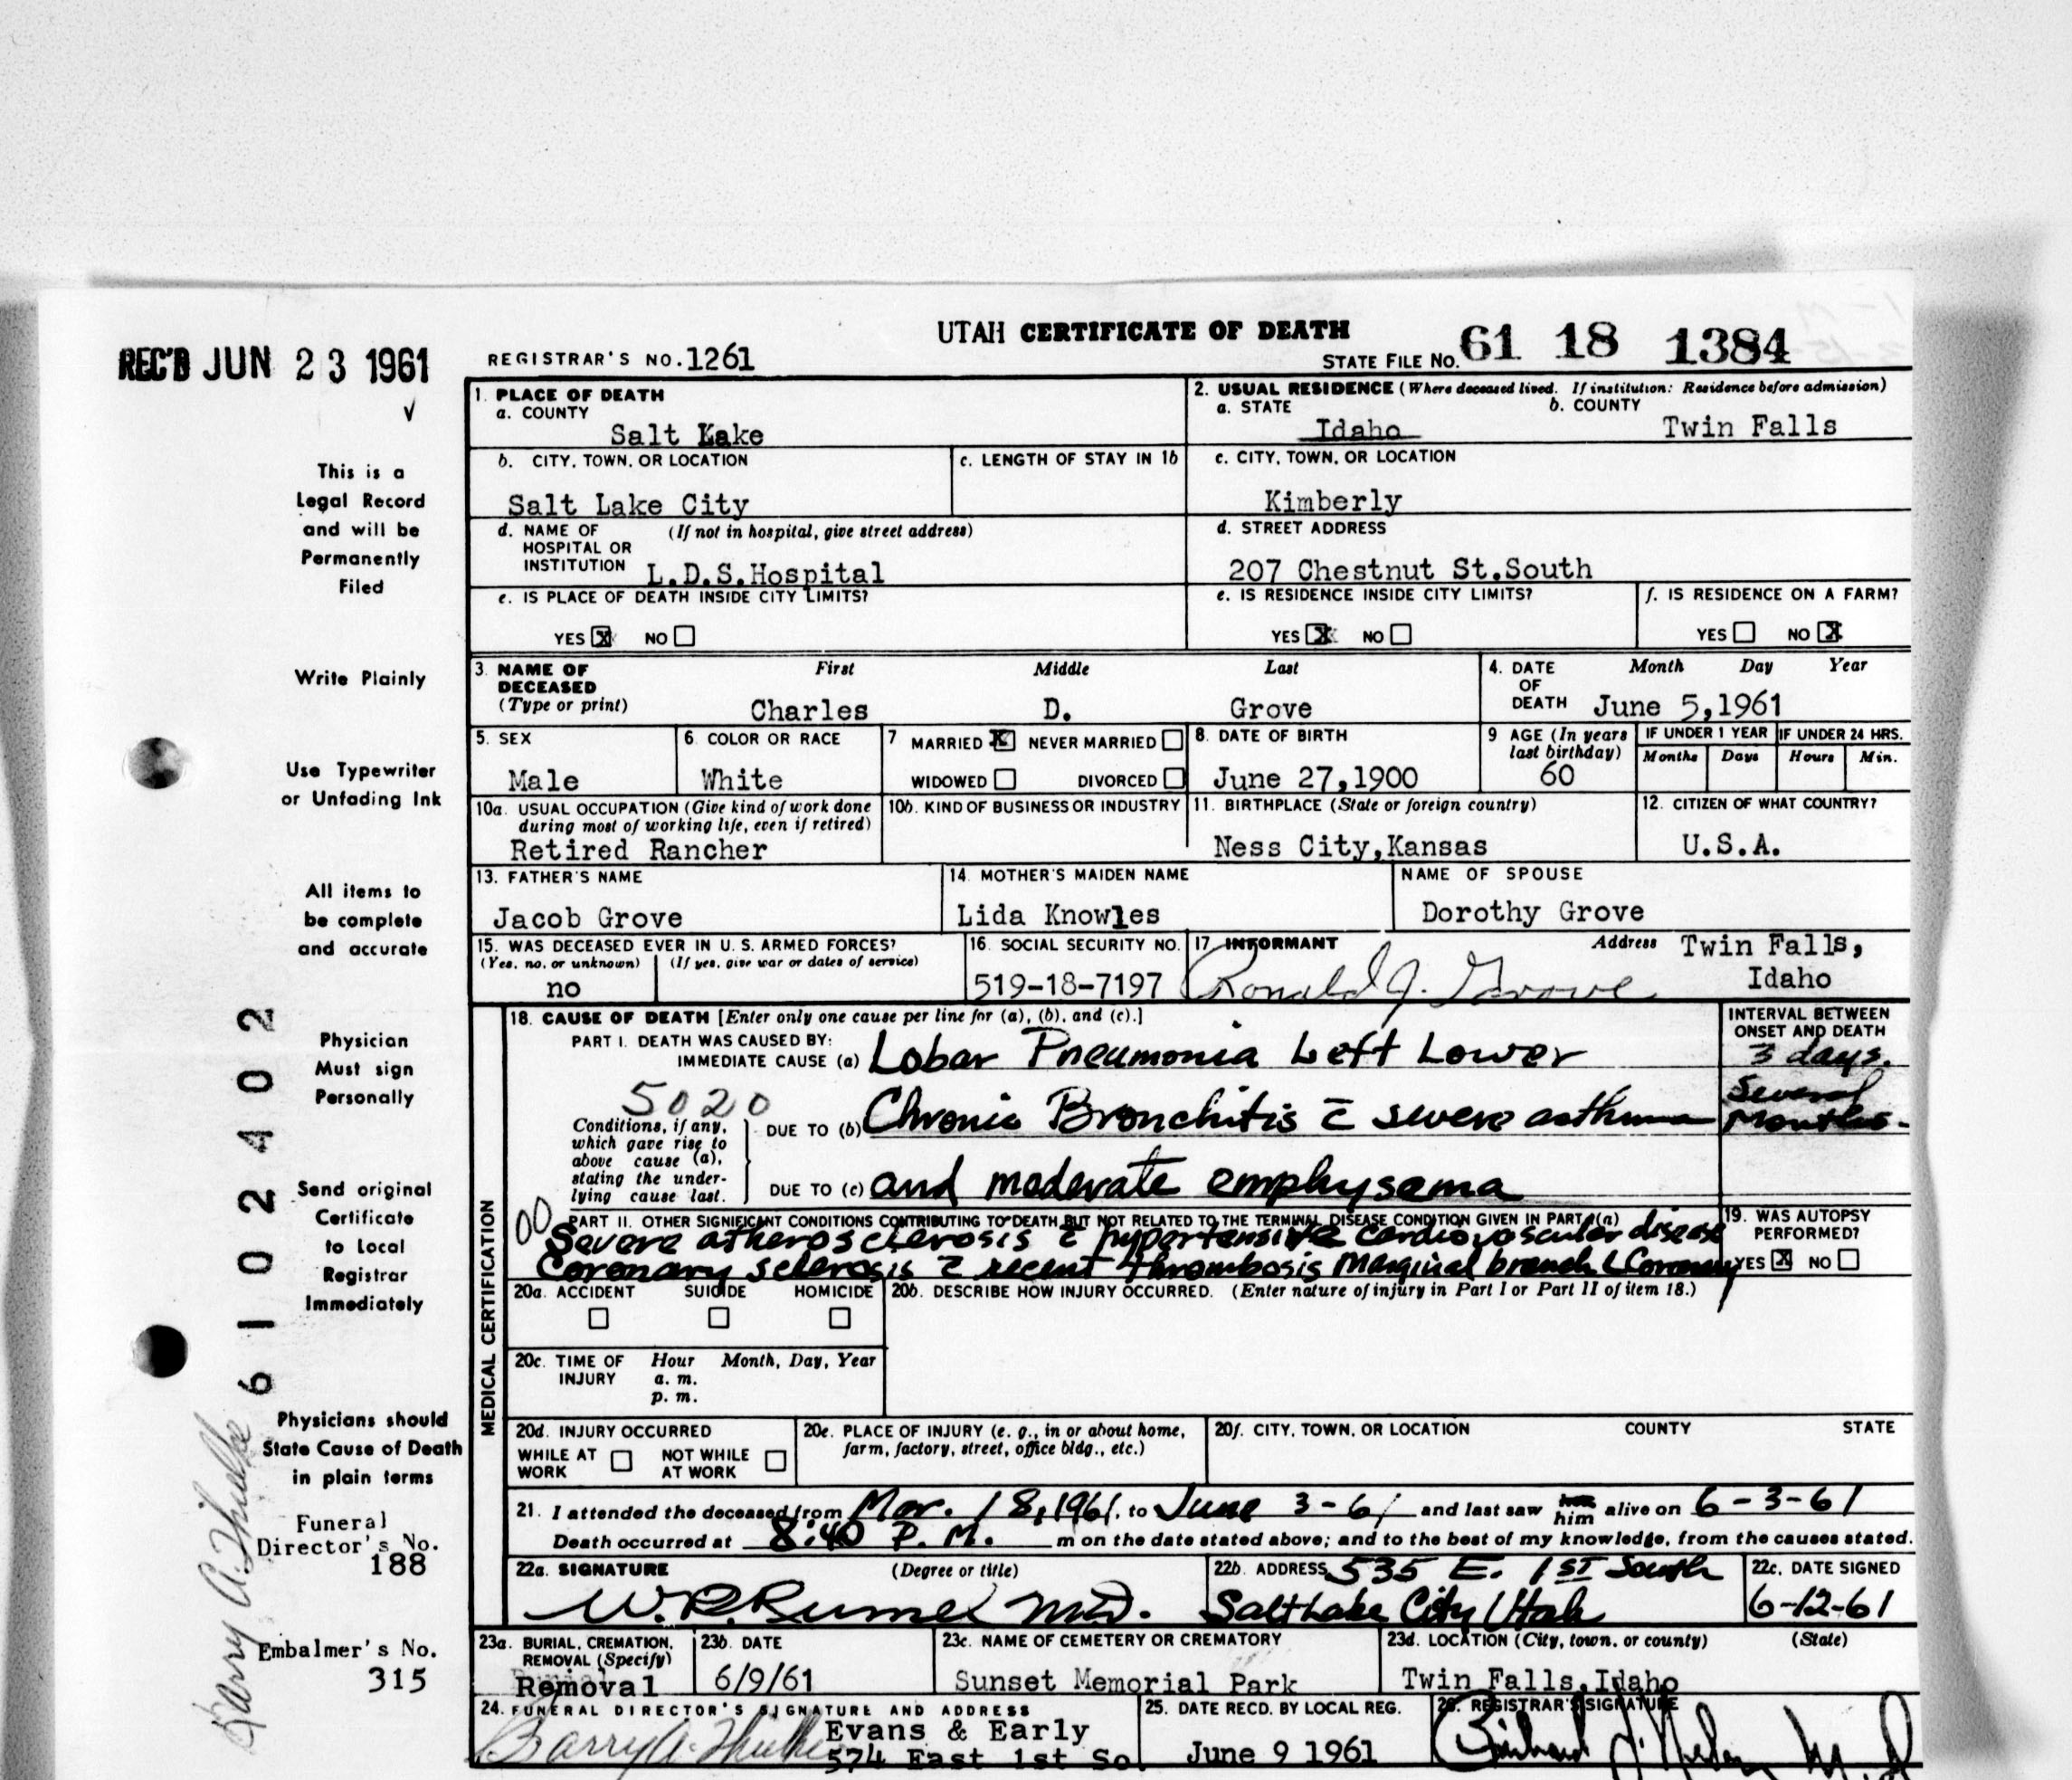 UTAH CERTIFICATE OF DEATH
REC'D JUN 23 1961
REGISTRAR'S NO. 1261
STATE FILE NO. 61 18 1384
1. PLACE OF DEATH
a. COUNTY
Salt Lake
2. USUAL RESIDENCE (Where deceased lived. If institution: Residence before admission)
a. STATE
Idaho
b. COUNTY
Twin Falls
b. CITY, TOWN, OR LOCATION
Salt Lake City
c. LENGTH OF STAY IN 1b
c. CITY, TOWN, OR LOCATION
Kimberly
d. NAME OF HOSPITAL OR INSTITUTION
(If not in hospital, give street address)
L.D.S.Hospital
d. STREET ADDRESS
207 Chestnut St.South
e. IS PLACE OF DEATH INSIDE CITY LIMITS?
YES X NO
e. IS RESIDENCE INSIDE CITY LIMITS?
YES X NO
f. IS RESIDENCE ON A FARM?
YES NO X
3. NAME OF DECEASED
(Type or print)
First Middle Last
Charles D. Grove
4. DATE OF DEATH
Month Day Year
June 5,1961
5. SEX
Male
6. COLOR OR RACE
White
7 MARRIED X NEVER MARRIED
WIDOWED DIVORCED
8. DATE OF BIRTH
June 27,1900
9 AGE (In years last birthday)
60
IF UNDER 1 YEAR
Months Days
IF UNDER 24 HRS.
Hours Min.
10a. USUAL OCCUPATION (Give kind of work done during most of working life, even if retired)
Retired Rancher
10b. KIND OF BUSINESS OR INDUSTRY
11. BIRTHPLACE (State or foreign country)
Ness City,Kansas
12. CITIZEN OF WHAT COUNTRY?
U.S.A.
13. FATHER'S NAME
Jacob Grove
14. MOTHER'S MAIDEN NAME
Lida Knowles
NAME OF SPOUSE
Dorothy Grove
15. WAS DECEASED EVER IN U.S. ARMED FORCES?
(Yes, no, or unknown) (If yes, give war or dates of service)
no
16. SOCIAL SECURITY NO.
519-18-7197
17. INFORMANT
Ronald J. Grove
Address Twin Falls,
Idaho
18. CAUSE OF DEATH [Enter only one cause per line for (a), (b), and (c).]
PART I. DEATH WAS CAUSED BY:
IMMEDIATE CAUSE (a) Lobar Pneumonia Left Lower
INTERVAL BETWEEN ONSET AND DEATH
3 days.
5020
Conditions, if any, which gave rise to above cause (a), stating the underlying cause last.
DUE TO (b) Chronic Bronchitis c̄ severe asthma
Several Months.
DUE TO (c) and moderate emphysema
00
PART II. OTHER SIGNIFICANT CONDITIONS CONTRIBUTING TO DEATH BUT NOT RELATED TO THE TERMINAL DISEASE CONDITION GIVEN IN PART I(a)
Severe atherosclerosis c̄ hypertensive cardiovascular disease
Coronary sclerosis c̄ recent thrombosis marginal branch L Coronary
19. WAS AUTOPSY PERFORMED?
YES X NO
MEDICAL CERTIFICATION
20a. ACCIDENT SUICIDE HOMICIDE
20b. DESCRIBE HOW INJURY OCCURRED. (Enter nature of injury in Part I or Part II of item 18.)
20c. TIME OF INJURY
Hour Month, Day, Year
a. m.
p. m.
20d. INJURY OCCURRED
WHILE AT WORK NOT WHILE AT WORK
20e. PLACE OF INJURY (e. g., in or about home, farm, factory, street, office bldg., etc.)
20f. CITY, TOWN, OR LOCATION COUNTY STATE
21. I attended the deceased from Mar. 18,1961, to June 3-61 and last saw her him alive on 6-3-61
Death occurred at 8:40 P. M. m on the date stated above; and to the best of my knowledge, from the causes stated.
22a. SIGNATURE (Degree or title)
W.R. Rumel M.D.
22b. ADDRESS 535 E. 1ST South
Salt Lake City Utah
22c. DATE SIGNED
6-12-61
23a. BURIAL, CREMATION, REMOVAL (Specify)
Removal
23b. DATE
6/9/61
23c. NAME OF CEMETERY OR CREMATORY
Sunset Memorial Park
23d. LOCATION (City, town, or county) (State)
Twin Falls,Idaho
24. FUNERAL DIRECTOR'S SIGNATURE AND ADDRESS
Evans & Early
574 East 1st So.
25. DATE RECD. BY LOCAL REG.
June 9 1961
26. REGISTRAR'S SIGNATURE
This is a
Legal Record
and will be
Permanently
Filed
Write Plainly
Use Typewriter
or Unfading Ink
All items to
be complete
and accurate
Physician
Must sign
Personally
Send original
Certificate
to Local
Registrar
Immediately
Physicians should
State Cause of Death
in plain terms
Funeral
Director's No.
188
Embalmer's No.
315
6102402